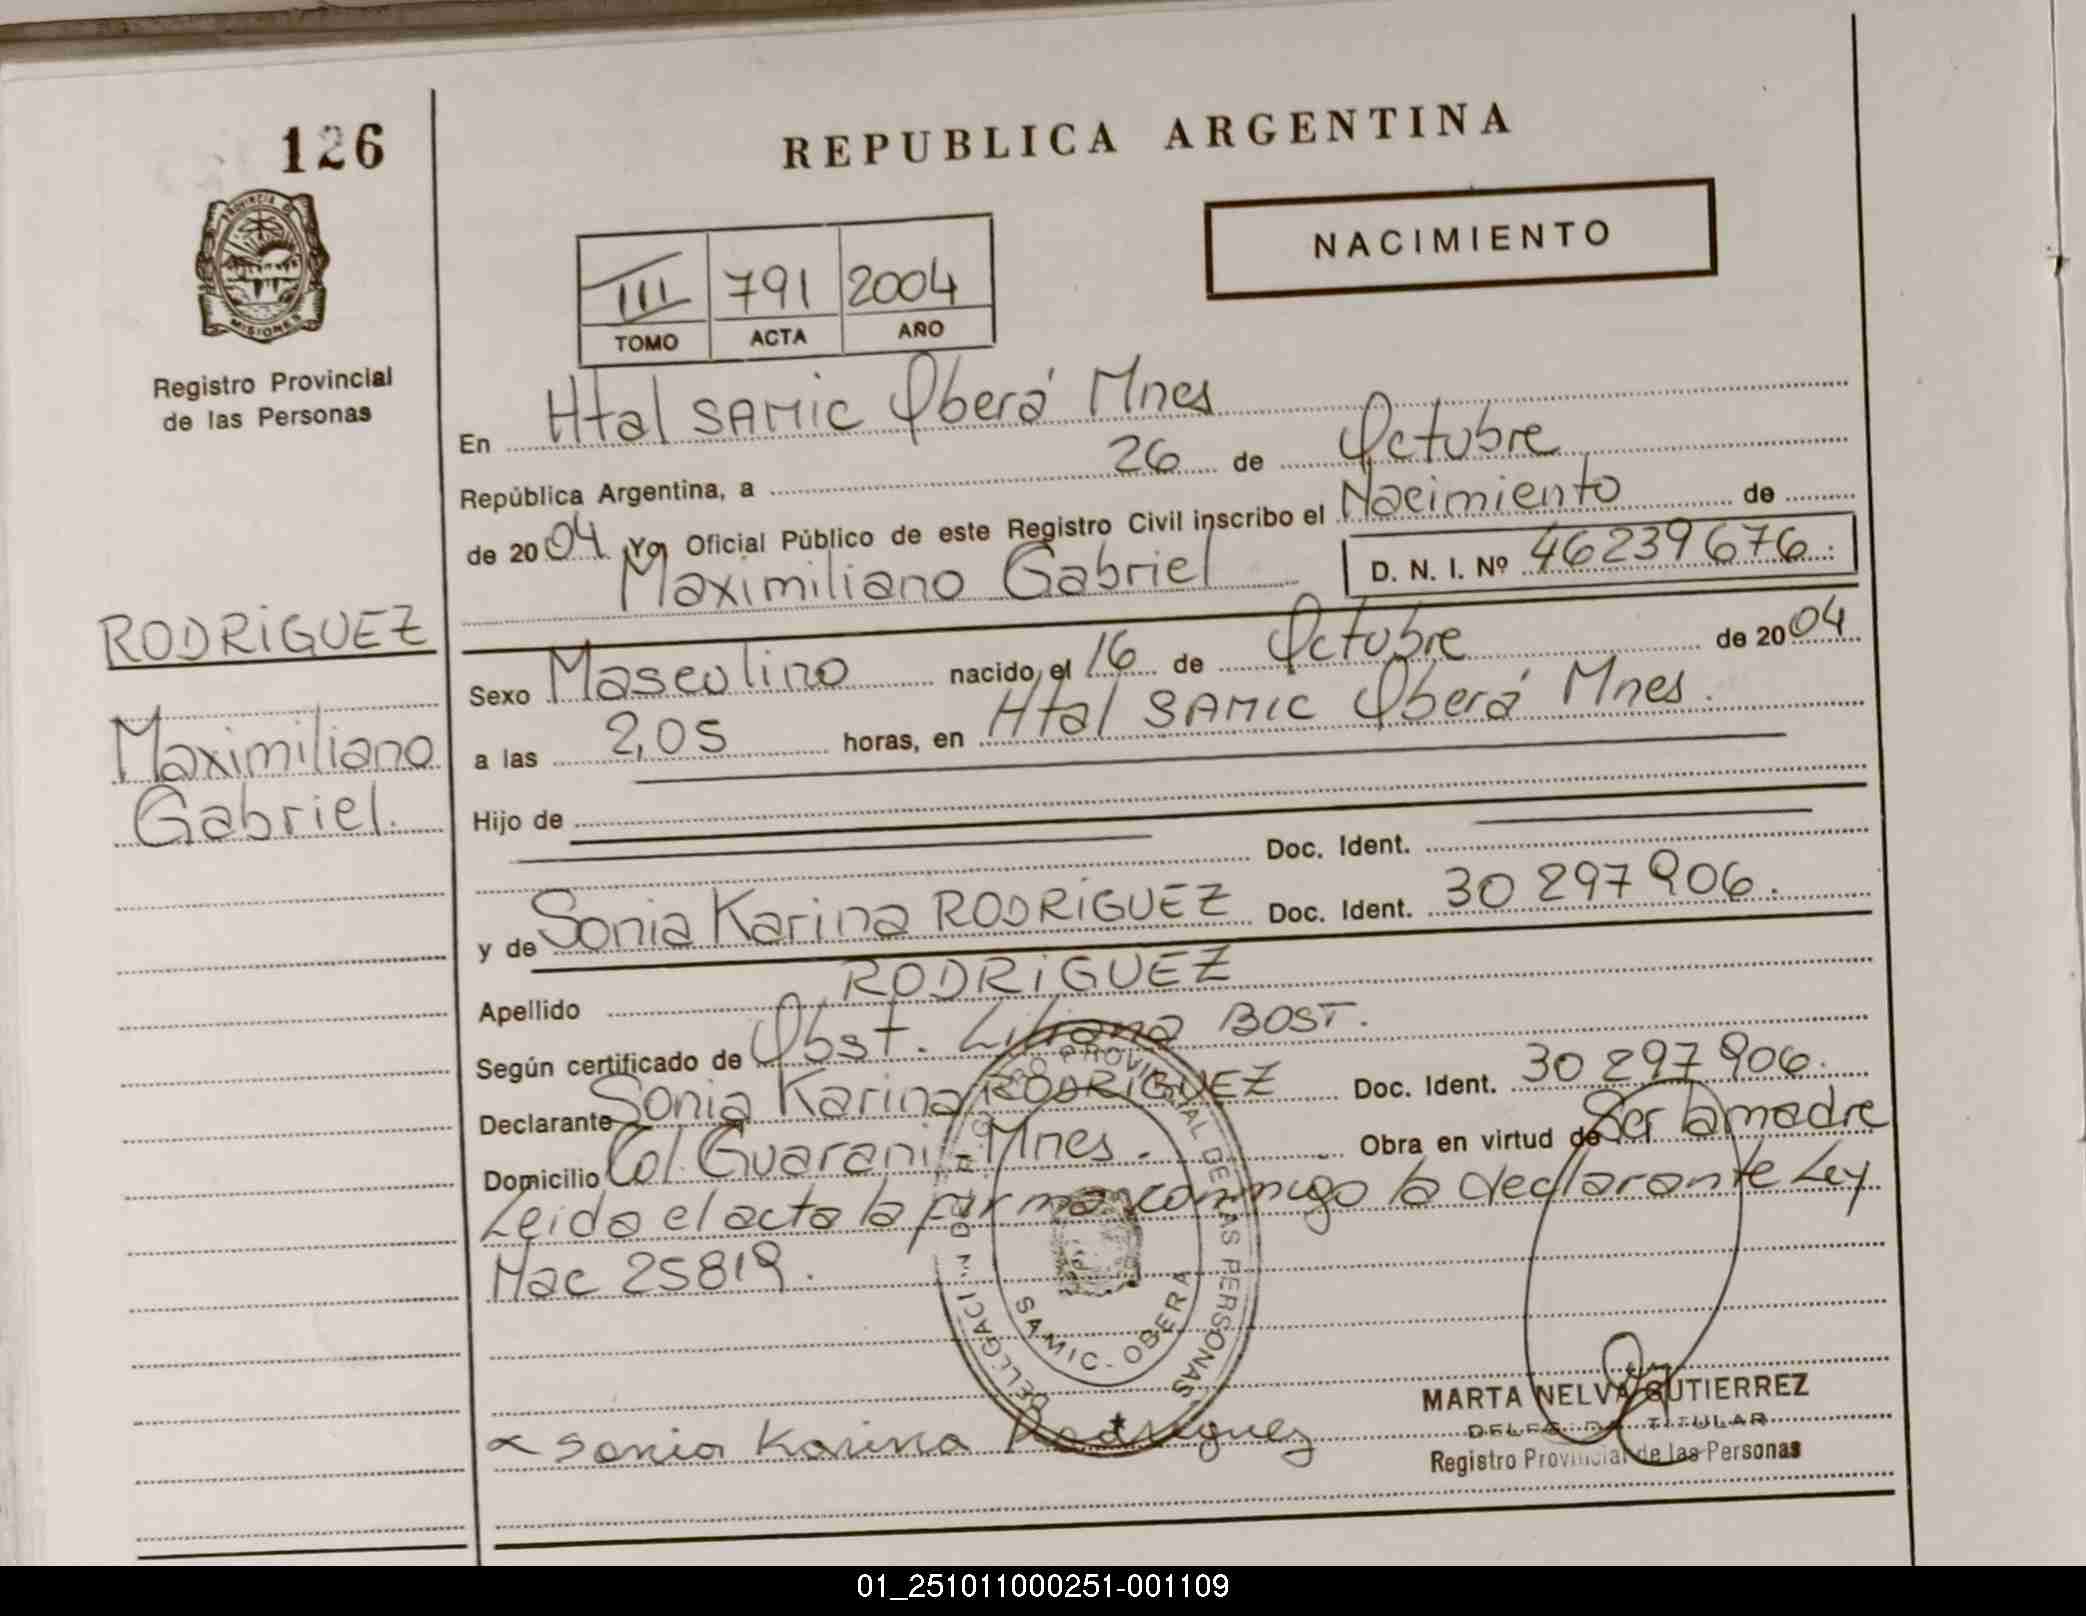 126
PROVINCIA D
MISIONES
Registro Provincial
de las Personas
RODRiGUEZ
Maximiliano
Gabriel.
REPUBLICA ARGENTINA
NACIMIENTO
III 791 2004
TOMO ACTA AÑO
En Htal SAMIC Oberá Mnes
República Argentina, a 26 de Octubre
de 2004 Yo, Oficial Público de este Registro Civil inscribo el Nacimiento de
Maximiliano Gabriel D. N. I. Nº 46239676
Sexo Masculino nacido, el 16 de Octubre de 2004
a las 2,05 horas, en Htal SAMIC Oberá Mnes.
Hijo de
Doc. Ident.
y de Sonia Karina RODRiGUEZ Doc. Ident. 30 297 906.
Apellido RODRiGUEZ
Según certificado de Obst. Liliana BOST.
Declarante Sonia Karina RODRiGUEZ Doc. Ident. 30 297 906.
Domicilio Col. Guarani - Mnes. Obra en virtud de Ser la madre
Leida el acta la firma conmigo la declarante Ley
Nac 25819.
PROVINCIAL DE LAS PERSONAS
SAMIC - OBERA
Sonia Karina Rodriguez
MARTA NELVA GUTIERREZ
DELEGADA TITULAR
Registro Provincial de las Personas
01_251011000251-001109